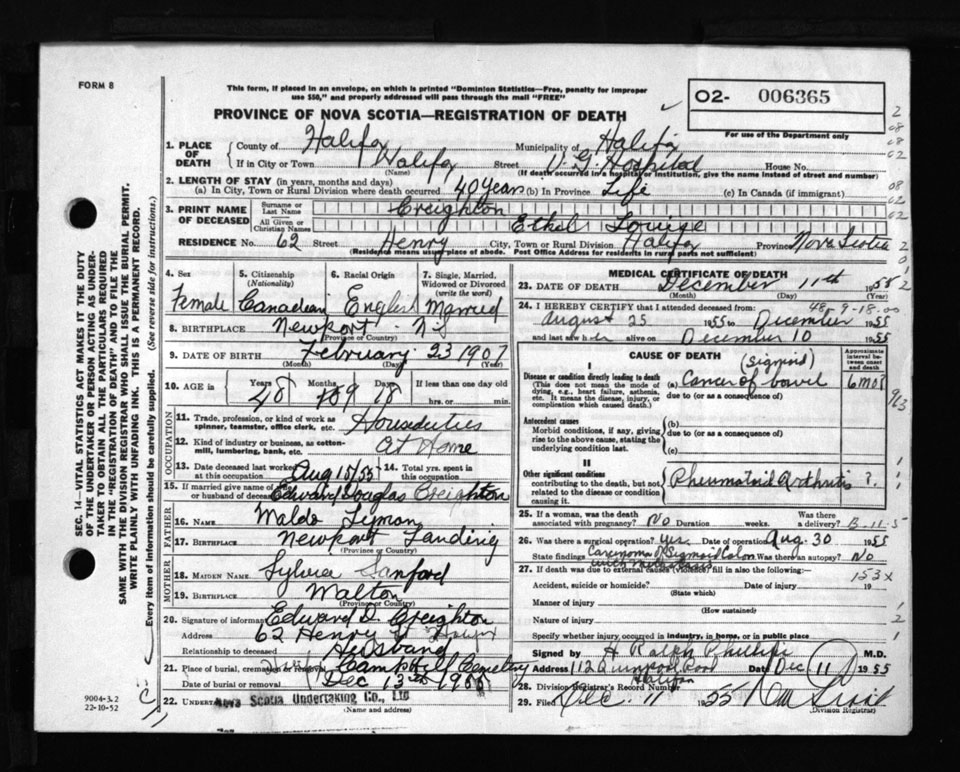 FORM 8
This form, if placed in an envelope, on which is printed "Dominion Statistics—Free, penalty for improper
use $50," and properly addressed will pass through the mail "FREE"
PROVINCE OF NOVA SCOTIA—REGISTRATION OF DEATH
02- 006365
For use of the Department only
1. PLACE OF DEATH County of Halifax Municipality of Halifax
If in City or Town Halifax Street V. G. Hospital House No.
(Name) (If death occurred in a hospital or institution, give the name instead of street and number)
2. LENGTH OF STAY (in years, months and days)
(a) In City, Town or Rural Division where death occurred 40 years (b) In Province Life (c) In Canada (if immigrant)
3. PRINT NAME OF DECEASED Surname or Last Name Creighton
All Given or Christian Names Ethel Louise
RESIDENCE No. 62 Street Henry City, Town or Rural Division Halifax Province Nova Scotia
(Residence means usual place of abode. Post Office Address for residents in rural parts not sufficient)
4. Sex 5. Citizenship (Nationality) 6. Racial Origin 7. Single, Married, Widowed or Divorced (write the word)
Female Canadian English Married
8. BIRTHPLACE Newport N.S.
(Province or Country)
9. DATE OF BIRTH February 23 1907
(Month) (Day) (Year)
10. AGE in Years 48 Months 9 Days 18 If less than one day old
hrs. or min.
OCCUPATION
11. Trade, profession, or kind of work as spinner, teamster, office clerk, etc. Houseduties
12. Kind of industry or business, as cotton-mill, lumbering, bank, etc. At Home
13. Date deceased last worked at this occupation Aug 15/55 14. Total yrs. spent in this occupation
15. If married give name of wife or husband of deceased Edward Douglas Creighton
FATHER
16. NAME
17. BIRTHPLACE Newport Landing
(Province or Country)
MOTHER
18. MAIDEN NAME Sylvia Sanford
19. BIRTHPLACE Walton
(Province or Country)
20. Signature of informant Edward D. Creighton
Address 62 Henry St Halifax
Relationship to deceased Husband
21. Place of burial, cremation or removal Camp Hill Cemetery
Date of burial or removal Dec 13th 1955
22. UNDERTAKER Nova Scotia Undertaking Co., Ltd
(Name and address)
MEDICAL CERTIFICATE OF DEATH
23. DATE OF DEATH December 11th 1955
(Month) (Day) (Year)
48-9-18-00
24. I HEREBY CERTIFY that I attended deceased from:
August 25 1955 to December 1955
and last saw her alive on December 10 1955
CAUSE OF DEATH
Approximate interval between onset and death
I
Disease or condition directly leading to death
(This does not mean the mode of dying, e.g., heart failure, asthenia, etc. It means the disease, injury, or complication which caused death.)
(Sigmoid)
(a) Cancer of bowel 6 mos
due to (or as a consequence of)
Antecedent causes
Morbid conditions, if any, giving rise to the above cause, stating the underlying condition last.
(b)
due to (or as a consequence of)
(c)
II
Other significant conditions contributing to the death, but not related to the disease or condition causing it.
Rheumatoid Arthritis ?
25. If a woman, was the death associated with pregnancy? No Duration weeks. Was there a delivery?
26. Was there a surgical operation? Yes. Date of operation Aug. 30 1955
State findings Carcinoma of Sigmoid Colon with metastasis Was there an autopsy? No
27. If death was due to external causes (violence) fill in also the following:
153X
Accident, suicide or homicide? Date of injury 19
(State which)
Manner of injury
(How sustained)
Nature of injury
Specify whether injury occurred in industry, in home, or in public place
Signed by H Ralph Phillips M.D.
Address 112 Quinpool Road Halifax Date Dec 11 1955
28. Division Registrar's Record Number
29. Filed Dec. 11 1955
(Division Registrar)
SEC. 14—VITAL STATISTICS ACT MAKES IT THE DUTY
OF THE UNDERTAKER OR PERSON ACTING AS UNDER-
TAKER TO OBTAIN ALL THE PARTICULARS REQUIRED
IN THE "REGISTRATION OF DEATH" AND TO FILE THE
SAME WITH THE DIVISION REGISTRAR WHO SHALL ISSUE THE BURIAL PERMIT.
WRITE PLAINLY WITH UNFADING INK. THIS IS A PERMANENT RECORD.
Every item of information should be carefully supplied. (See reverse side for instructions.)
9004-3.2
22-10-52